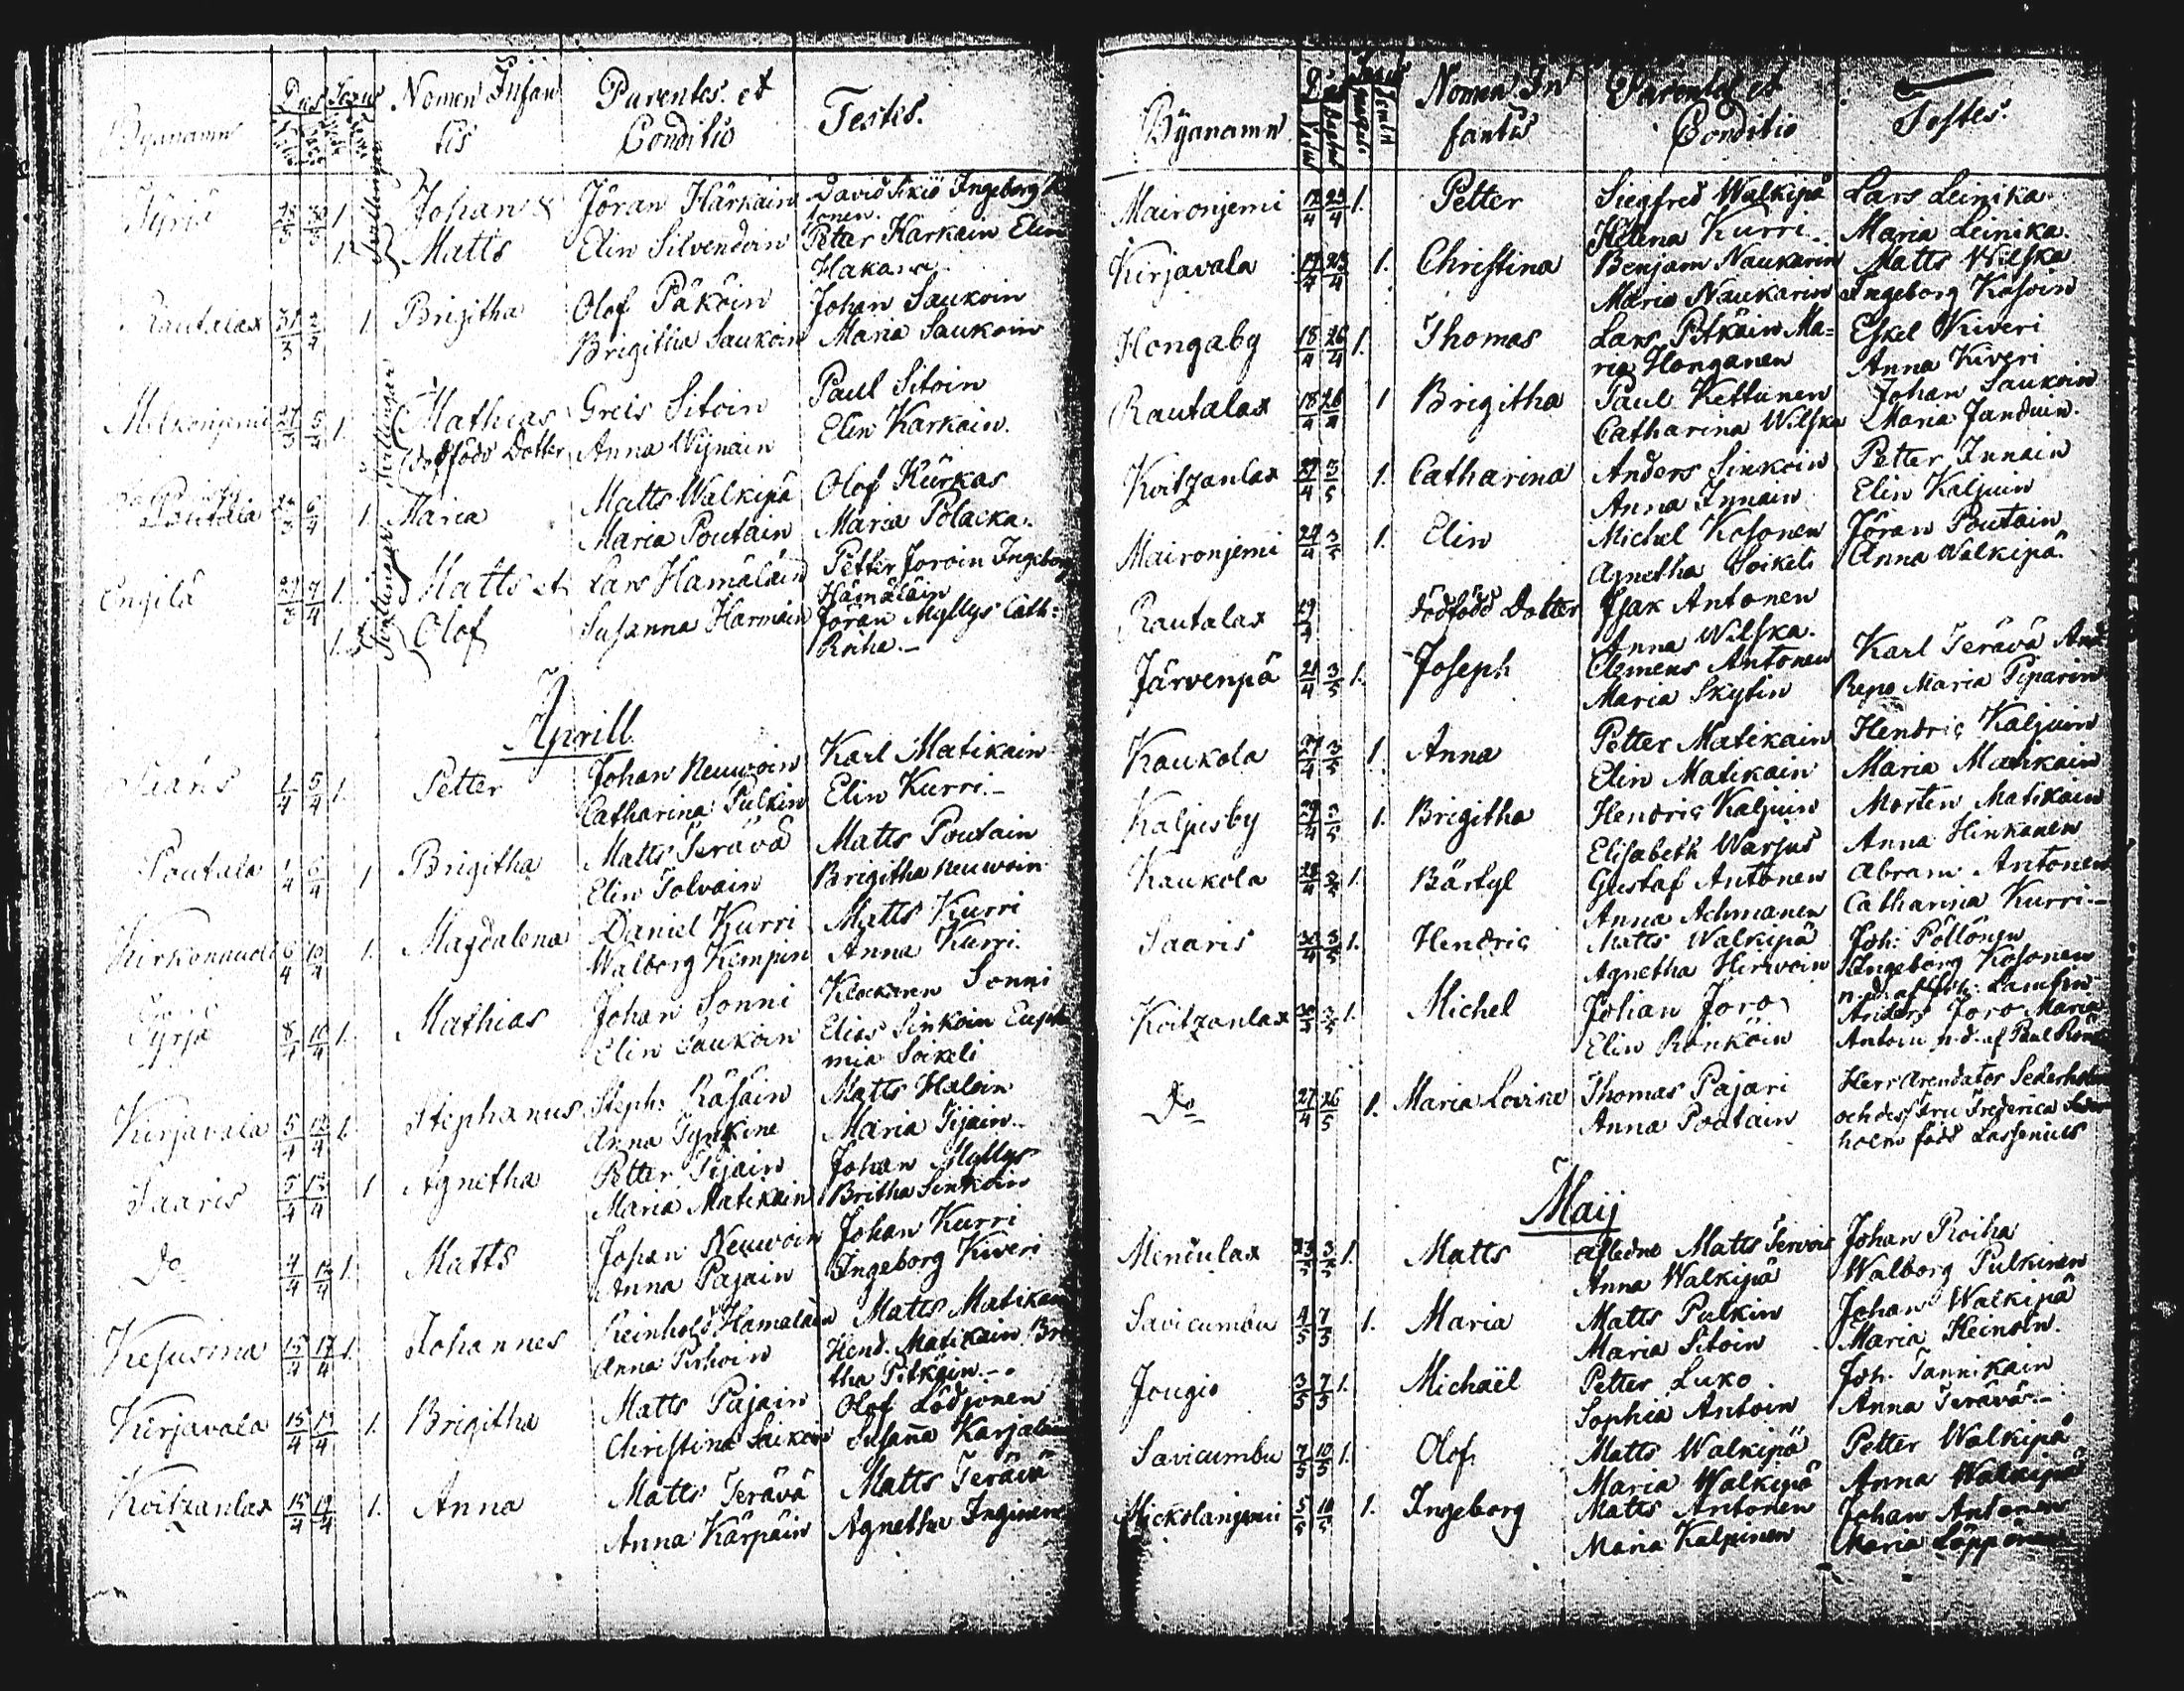 Bÿanamn Dies Sexus Nomen Infan Parentes et Testes.
tis Conditio
Johan & Jöran Härkäin David Ikiö Ingeborg
1. Matts Elin Silvendoin Petter Harkain Elin
Hakana
Rautalax 31/3 2/4 1 Brigitha Olof Päköin Johan Saukoin
Brigitha Saukoin Maria Saukoin
Mikkonjemi 27/3 5/4 1. Mathias Greis Sitoin Paul Sitoin
dödfödd Dotter Anna Wijnain Elin Karkain.
Poutala 6/4 1. Maria Matts Walkipä Olof Kürkas
Maria Poutain Maria Polacka.
Engilä 29/3 7/4 1. Matts et Lars Hamäläin Petter Joroin Ingeborg
Hämäläin
1. Olof Susanna Harmain Jöran Myllys Cath:
Roiha.
Tvillingar
Aprill
Saaris 1/4 5/4 1. Petter Johan Neuwoin Karl Matikain
Catharina Pulkin Elin Kurri.
Poutala 1/4 6/4 1 Brigitha Matts Terävä Matts Poutain
Elin Tolvain Brigitha Neuwoin
Kirkonnudi 6/4 10/4 1. Magdalena Daniel Kurri Matts Kurri
Walborg Kempin Anna Kurri.
Tyrjä 8/4 10/4 1. Mathias Johan Sonni Klockaren Sonni
Elin Saukoin Elias Sinkoin Euphe
mia Soikeli
Kirjavala 5/4 12/4 1. Stephanus Steph: Räsäin Matts Haloin
Anna Tynkine Maria Tijain.
Saaris 5/4 12/4 1 Agnetha Petter Tijain Johan Myllys
Maria Matikain Britha Sinkoin
Do 4/4 12/4 1. Matts Johan Neuwoin Johan Kurri
Anna Pajain Ingeborg Kiveri
Kesusima 15/4 17/4 1. Johannes Reinhold Hamalain Matts Matikain
Anna Pirhoin Hend. Matikain Bri
tha Pitkäin.
Kirjavala 15/4 19/4 1. Brigitha Matts Pajain Olof Lödjönen
Christina Saikoin Susana Karjalain
Koitzanlax 15/4 19/4 1. Anna Matts Terävä Matts Terävä
Anna Kärpäin Agnetha Inginen
Bÿanamn Nomen In Parentes et Testes.
fantis Conditio
Maironjemi 17/4 23/4 1. Petter Siegfred Walkipä Lars Leinika
Helena Kurri. Maria Leinika.
Kirjavala 17/4 25/4 1. Christina Benjam Naukarin Matts Wilska
Maria Naukarin Ingeborg Kosoin
Hongaby 18/4 26/4 1. Thomas Lars Pitkäin Ma= Eskel Kiveri
ria Honganen Anna Kiveri
Rautalax 18/4 26/4 1 Brigitha Paul Kettunen Johan Saukoin
Catharina Wilska Maria Janduin.
Koitzanlax 27/4 3/5 1. Catharina Anders Sinkoin Petter Innain
Anna Innain Elin Kaljuin
Maironjemi 24/4 3/5 1. Elin Michel Kosonen Jöran Poutain
Agnetha Soikeli Anna Walkipä.
Rautalax 29/4 dödfödd Dotter Isak Antonen
Anna Wilska.
Järvenpä 21/4 3/5 1. Joseph Clemens Antonen Karl Terävä And
Maria Skytin Repo Maria Piparin
Kaukola 27/4 3/5 1 Anna Petter Matikain Hendric Kaljuin
Elin Matikain Maria Matikain
Kaljusby 29/4 3/5 1. Brigitha Hendric Kaljuin Morten Matikain
Elisabeth Warjus Anna Hinkanen
Kaukola 28/4 3/5 1. Bärtyl Gustaf Antonen Abram Antonen
Anna Achmanen Catharina Kurri.
Saaris 30/4 3/5 1. Hendric Matts Walkipä Joh: Pöllönen
Agnetha Hirwoin Ingeborg Kosonen
Koitzanlax 30/3 3/5 1. Michel Johan Joro Anders Joro Maria
Elin Rönköin Antoin n.d. af Paul Rönö
Do 27/4 26/5 1. Maria Lovisa Thomas Pajari Herr Arendator Sederholm
Anna Poutain och dess Fru Frederica Seder
holm född Lassenius
Maij
Menculax 23/5 3/5 1. Matts afledne Matts Tervois Johan Roiha
Anna Walkipä Walborg Pulkinen
Savicumbu 4/5 7/5 1. Maria Matts Pulkin Johan Walkipä
Maria Sitoin Maria Heinoin.
Jougio 3/5 7/5 1. Michaël Petter Luko Joh. Tannikain
Sophia Antoin Anna Terävä.
Savicumbu 7/5 10/5 1. Olof Matts Walkipä Petter Walkipä
Maria Walkipä Anna Walkipä
Mickolanjemi 5/5 10/5 1. Ingeborg Matts Antonen Johan Antonen
Maria Kaljunen Maria Löppönen